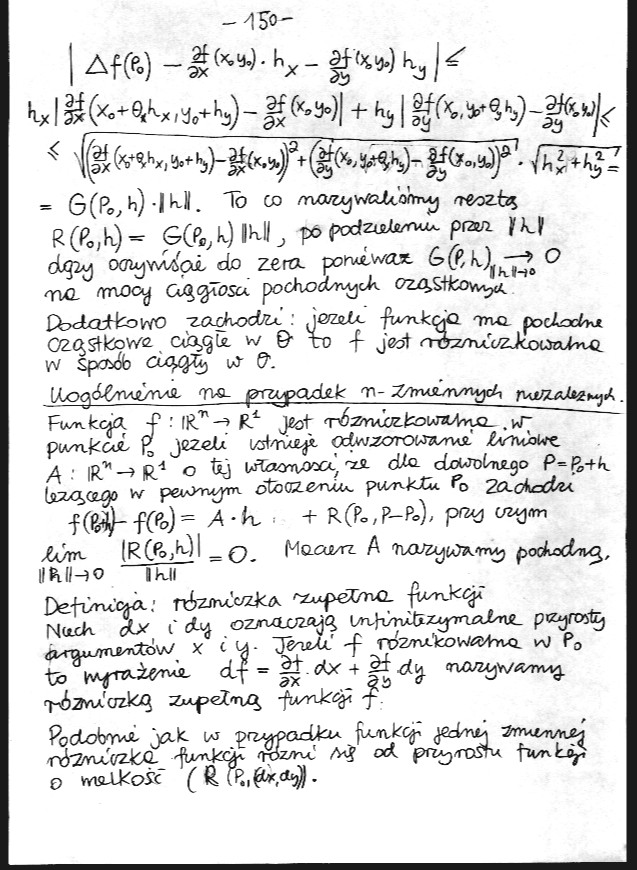 - 150 -
| Δf(P₀) - ∂f/∂x (x₀,y₀) · hₓ - ∂f/∂y (x₀,y₀) h_y | ≤
hₓ | ∂f/∂x (x₀+θₓhₓ, y₀+h_y) - ∂f/∂x (x₀,y₀) | + h_y | ∂f/∂y (x₀, y₀+θ_y h_y) - ∂f/∂y (x₀,y₀) | ≤
≤ √( (∂f/∂x (x₀+θₓhₓ, y₀+h_y) - ∂f/∂x (x₀,y₀))² + (∂f/∂y (x₀, y₀+θ_y h_y) - ∂f/∂y (x₀,y₀))² ) · √(hₓ² + h_y²) =
= G(P₀, h) · ‖h‖. To co nazywaliśmy resztą
R(P₀, h) = G(P₀, h) ‖h‖, po podzieleniu przez ‖h‖
dąży oczywiście do zera ponieważ G(P, h) ⟶ 0
‖h‖→0
na mocy ciągłości pochodnych cząstkowych.
Dodatkowo zachodzi: jeżeli funkcja ma pochodne
cząstkowe ciągłe w θ to f jest różniczkowalna
w sposób ciągły w θ.
Uogólnienie na przypadek n-zmiennych niezależnych.
Funkcja f : ℝⁿ → ℝ¹ jest różniczkowalna w
punkcie P₀ jeżeli istnieje odwzorowanie liniowe
A : ℝⁿ → ℝ¹ o tej własności, że dla dowolnego P = P₀+h
leżącego w pewnym otoczeniu punktu P₀ zachodzi
f(P₀+h) - f(P₀) = A · h + R(P₀, P-P₀), przy czym
lim ‖h‖→0 |R(P₀, h)| / ‖h‖ = 0. Macierz A nazywamy pochodną.
Definicja: różniczka zupełna funkcji
Niech dx i dy oznaczają infinitezymalne przyrosty
argumentów x i y. Jeżeli f różnikowalna w P₀
to wyrażenie df = ∂f/∂x · dx + ∂f/∂y · dy nazywamy
różniczką zupełną funkcji f.
Podobnie jak w przypadku funkcji jednej zmiennej
różniczka funkcji różni się od przyrostu funkcji
o wielkość ( R (P₀, (dx, dy)).